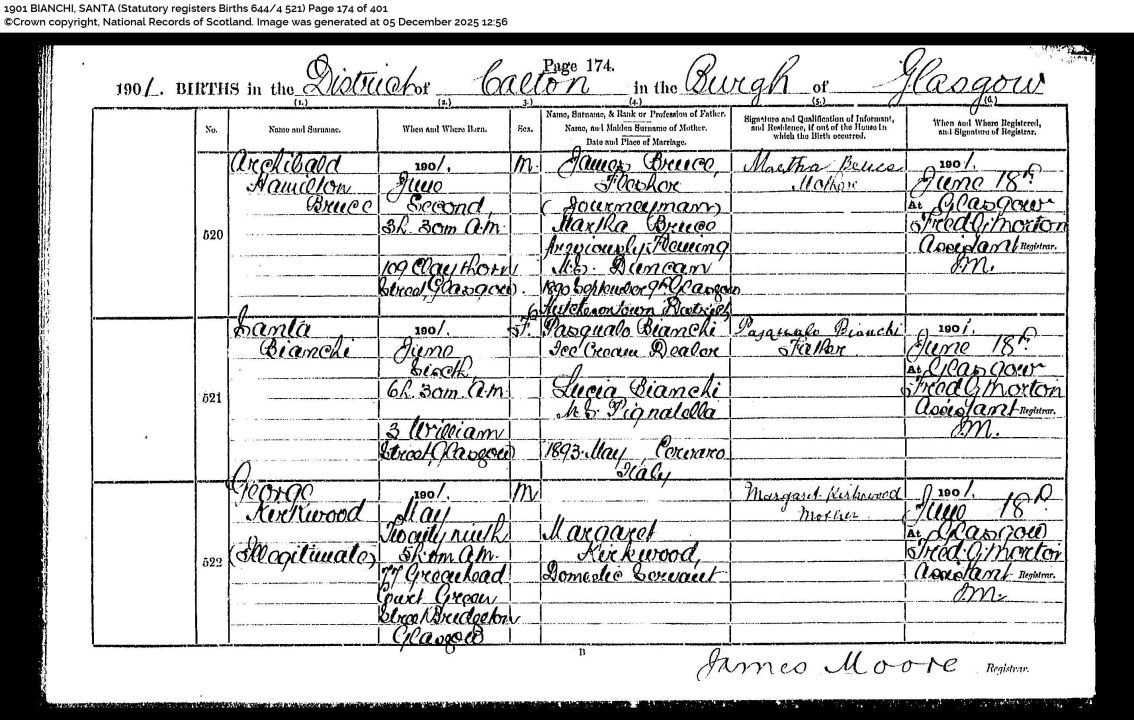 1901 BIANCHI, SANTA (Statutory registers Births 644/4 521) Page 174 of 401
©Crown copyright, National Records of Scotland. Image was generated at 05 December 2025 12:56
Page 174.
1901. BIRTHS in the District of Calton in the Burgh of Glasgow
(1.) (2.) 3.) (4.) (5.) (6.)
No.
Name and Surname.
When and Where Born.
Sex.
Name, Surname, & Rank or Profession of Father.
Name, and Maiden Surname of Mother.
Date and Place of Marriage.
Signature and Qualification of Informant,
and Residence, if out of the House in
which the Birth occurred.
When and Where Registered,
and Signature of Registrar.
520
Archibald
Hamilton
Bruce
1901.
June
Second,
3h. 30m A.M.
109 Claythorn
Street, Glasgow.
M.
James Bruce,
Flesher
(Journeyman)
Martha Bruce
previously Fleming
M.S. Duncan
1890 September 9th Glasgow
Hutchesontown District
Martha Bruce
Mother
1901.
June 18th
At Glasgow
Fred G. Morton
Assistant Registrar.
J.M.
521
Santa
Bianchi
1901.
June
Sixth,
6h. 30m. A.M.
3 William
Street, Glasgow
F.
Pasqualo Bianchi
Ice Cream Dealer
Lucia Bianchi
M.S. Pignatella
1893. May, Cervaro
Italy
Pasqualo Bianchi
Father
1901.
June 18th
At Glasgow
Fred G. Morton
Assistant Registrar.
J.M.
522
George
Kirkwood
(Illegitimate)
1901.
May
Twenty ninth
5h. 0m A.M.
77 Greenhead
Court Green
Street Bridgeton
Glasgow
M
Margaret
Kirkwood,
Domestic Servant
Margaret Kirkwood
Mother
1901.
June 18th
At Glasgow
Fred. G. Morton
Assistant Registrar.
J.M.
B
James Moore Registrar.